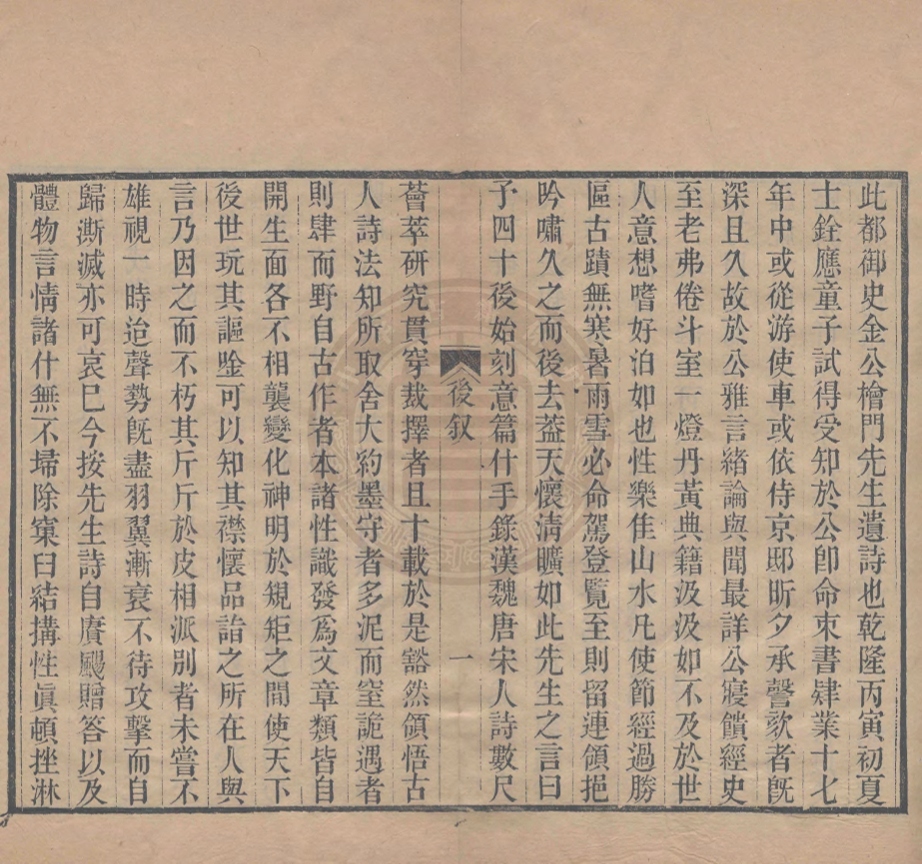 此都御史金公檜門先生遺詩也乾隆丙寅初夏
士銓應童子試得受知於公卽命束書肄業十七
年中或從游使車或依侍京邸昕夕承謦欬者旣
深且久故於公雅言緒論與聞最詳公寢饋經史
至老弗倦斗室一燈丹黃典籍汲汲如不及於世
人意想嗜好泊如也性樂佳山水凡使節經過勝
區古蹟無寒暑雨雪必命駕登覽至則留連領挹
吟嘯久之而後去葢天懷淸曠如此先生之言曰
予四十後始刻意篇什手錄漢魏唐宋人詩數尺
後叙
一
薈萃研究貫穿裁擇者且十載於是豁然領悟古
人詩法知所取舍大約墨守者多泥而窒詭遇者
則肆而野自古作者本諸性識發爲文章類皆自
開生面各不相襲變化神明於規矩之間使天下
後世玩其謳唫可以知其襟懷品詣之所在人與
言乃因之而不朽其斤斤於皮相派別者未嘗不
雄視一時迨聲勢旣盡羽翼漸衰不待攻擊而自
歸澌滅亦可哀巳今按先生詩自賡颺贈答以及
體物言情諸什無不埽除窠臼結搆性眞頓挫淋